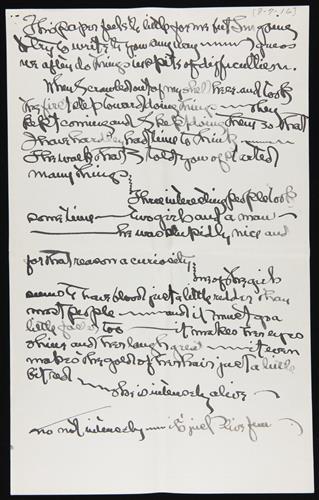 [8-9-16]
This paper feels too little for me but Im gonna
try to write to you anyway —— I guess
we often do things in spite of difficulties.
When I crawled out of my shell here and took
the first step toward doing things —— they
kept coming and I kept doing them so that
I have hardly had time to think ——
The walk that I told you of started
many things.
Three interesting people took
some time —— two girls and a man —
—— he was stupidly nice and
for that reason a curiosity
One of the girls
seems to have blood just a little redder than
most people —— and it must go a
little faster too —— it makes her eyes
shine and her laugh great —— it even
makes the gold of her hair just a little
bit red —— she is intensely alive —
no not intensely —— its just live fun